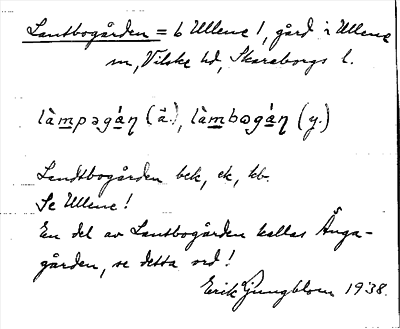 Lantbogården = b Ullene 1, gård i Ullene
sn, Vilske hd, Skaraborgs l.
làmpəgán (ä.), làmbəgán (y.)
Landtbogården bek, ek, kb.
Se Ullene!
En del av Lantbogården kallas Änga-
gården, se detta ord!
Erik Ljungblom 1938.